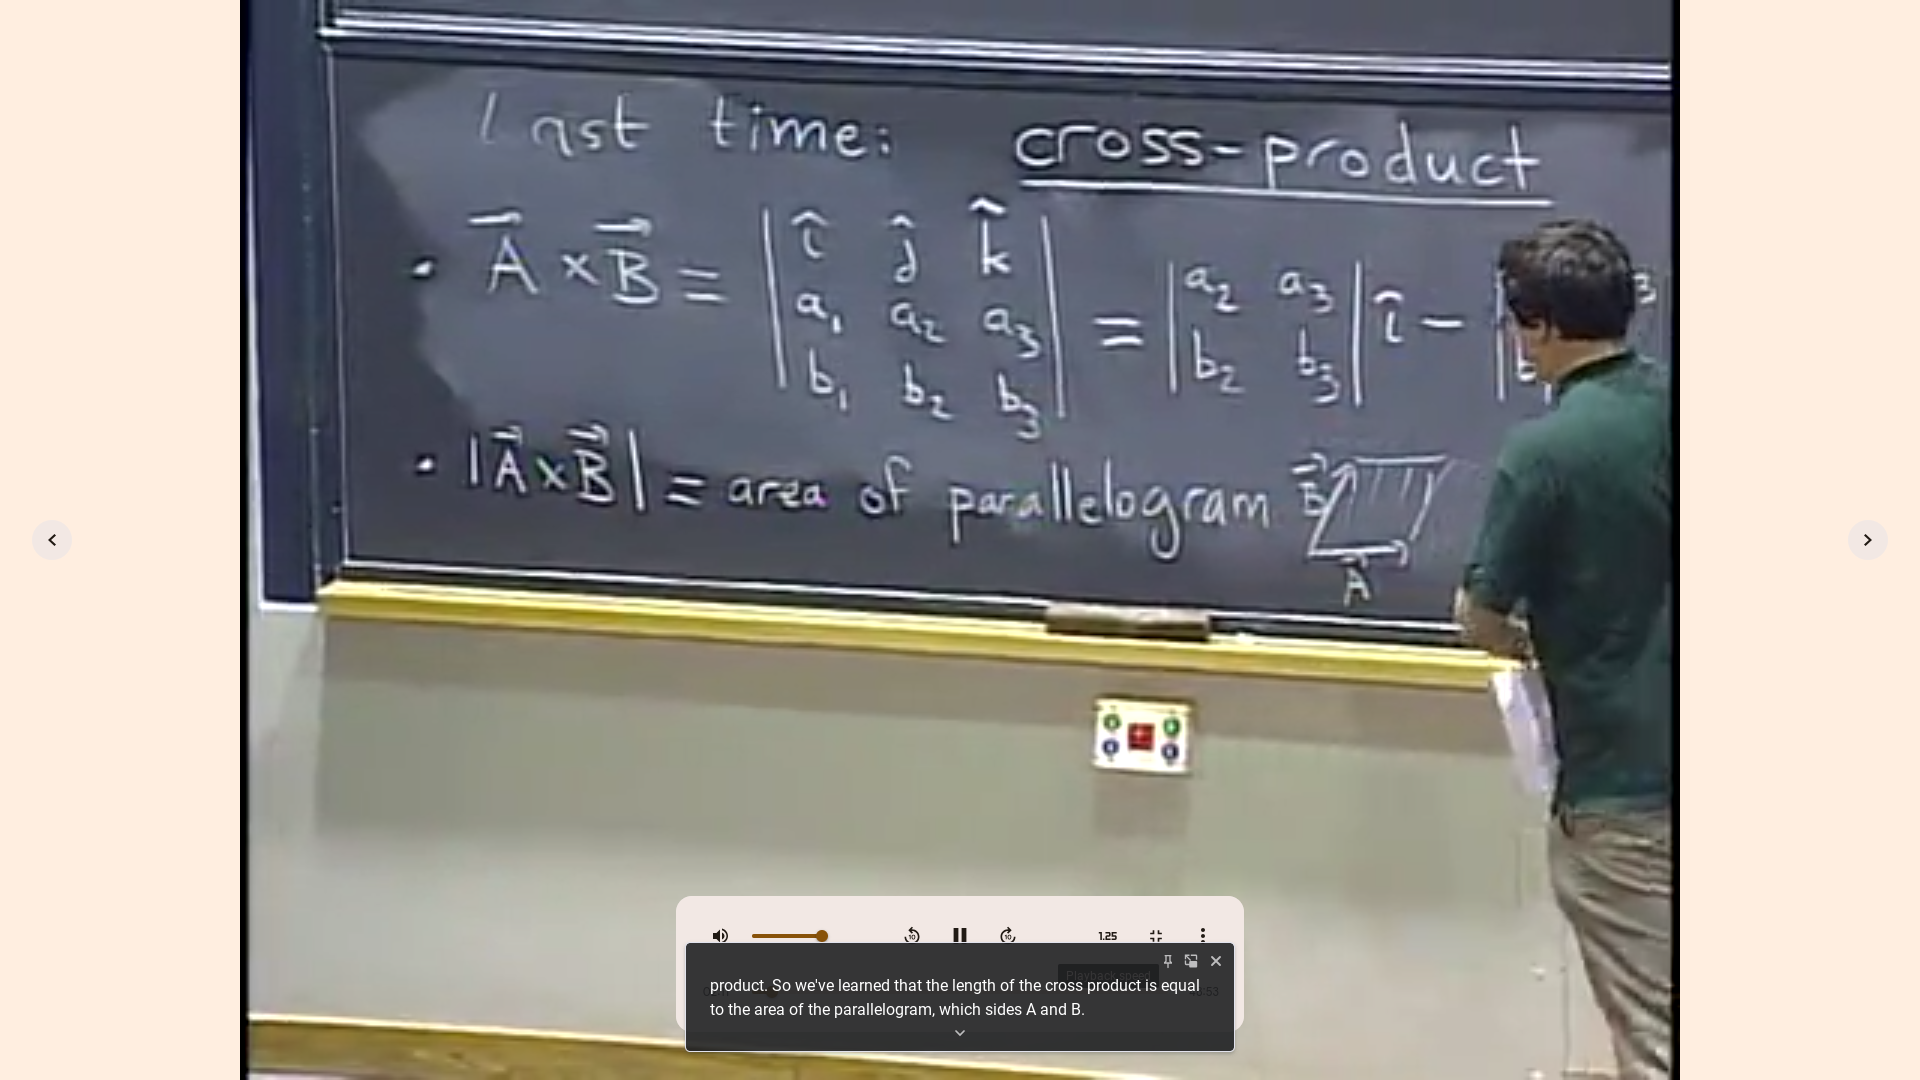 Last time: cross-product
• A⃗ × B⃗ = | î ĵ k̂ | = | a₂ a₃ | î − | 3
a₁ a₂ a₃
b₂ b₃ b₁
b₁ b₂ b₃
• |A⃗ × B⃗| = area of parallelogram B⃗
A⃗
10 10 1.25
Playback speed
product. So we've learned that the length of the cross product is equal
to the area of the parallelogram, which sides A and B.